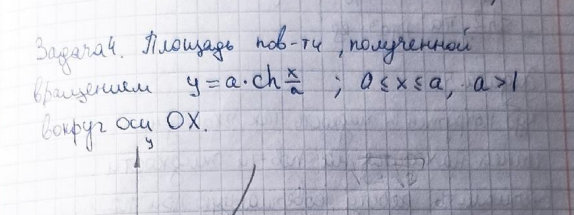 Задача 4. Площадь пов-ти, полученной
вращением y = a·ch x/a ; 0 ≤ x ≤ a, a > 1
вокруг оси OX.
y